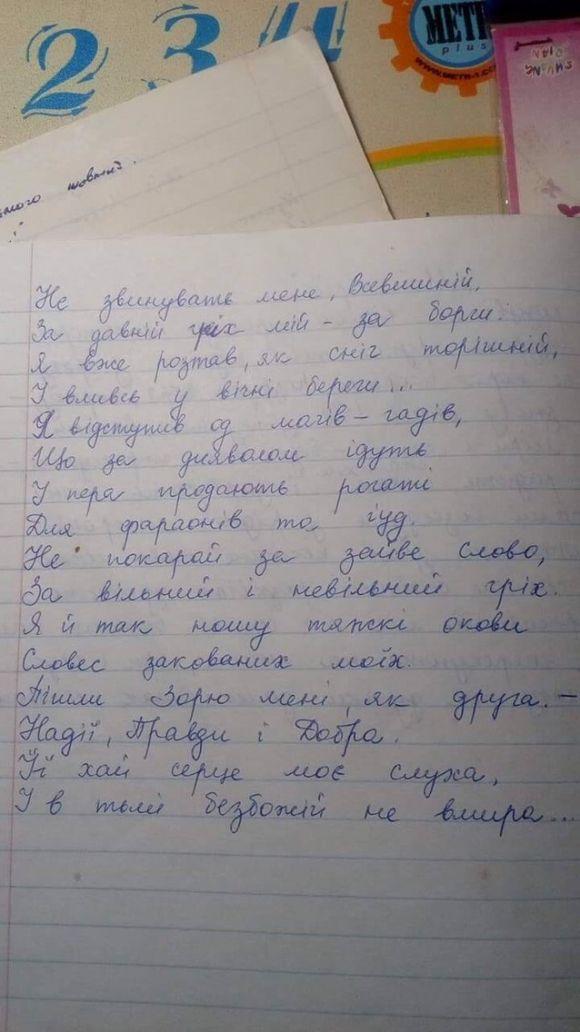 2 3 4
METR
plus
WWW.METR-1.COM
SHUANG
QIAN
мого жовтні.
Не звинувать мене, Всевишній,
За давній гріх мій - за борги.
Я вже розтав, як сніг торішній,
І вливсь у вічні береги...
Я відступив од магів - гадів,
Що за дияволом ідуть
І пера продають рогаті
Для фараонів та іуд.
Не покарай за зайве слово,
За вільний і невільний гріх.
Я й так ношу тяжкі окови
Словес закованих моїх.
Пішли Зорю мені, як друга. -
Надії, Правди і Добра.
Її хай серце моє слуха,
І в тьмі безбожій не вмира...